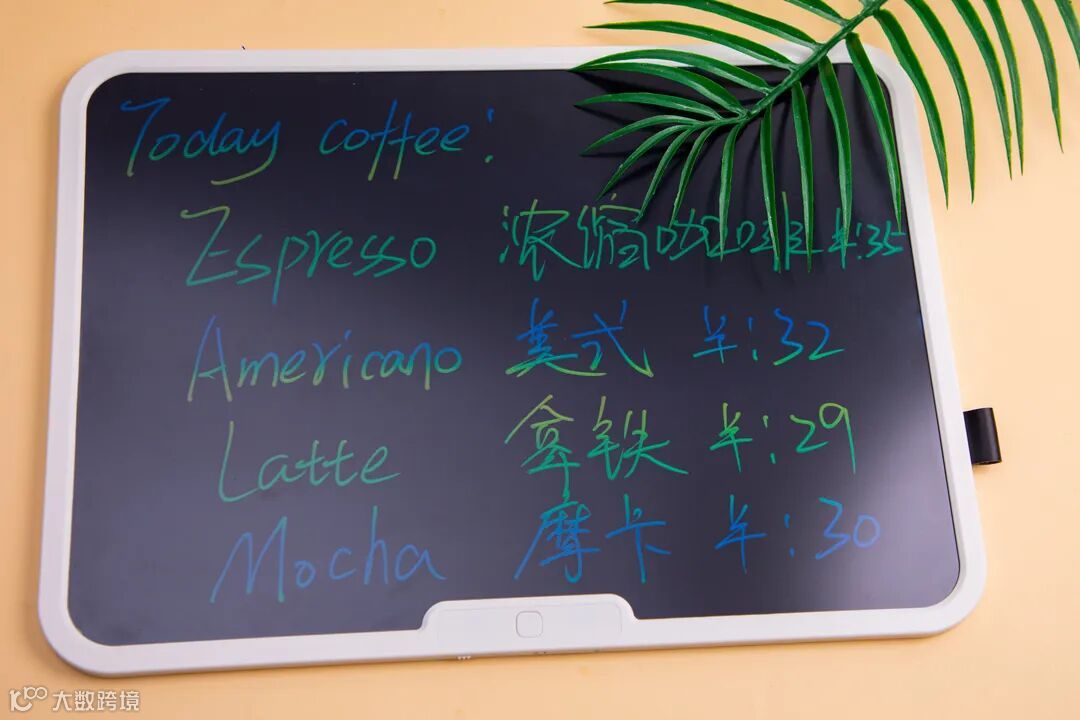 Today coffee:
Espresso 浓缩咖啡 ¥:35
Americano 美式 ¥:32
Latte 拿铁 ¥:29
Mocha 摩卡 ¥:30
大数跨境